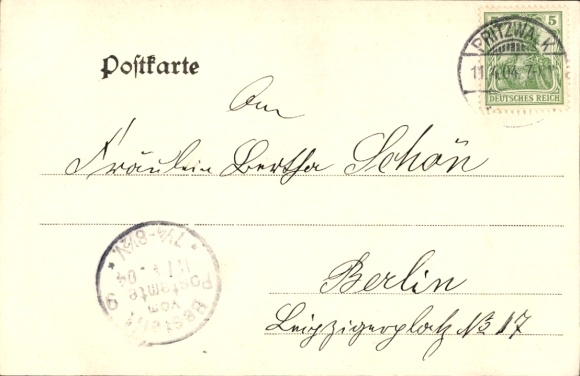 Postkarte
5
PRITZWALK
11.4.04. 7-8
DEUTSCHES REICH
An
Fräulein Bertha Schön
Berlin
Leipzigerplatz No 17
Bestellt
vom
Postamte
9
11/4 04
7¼-8½N.